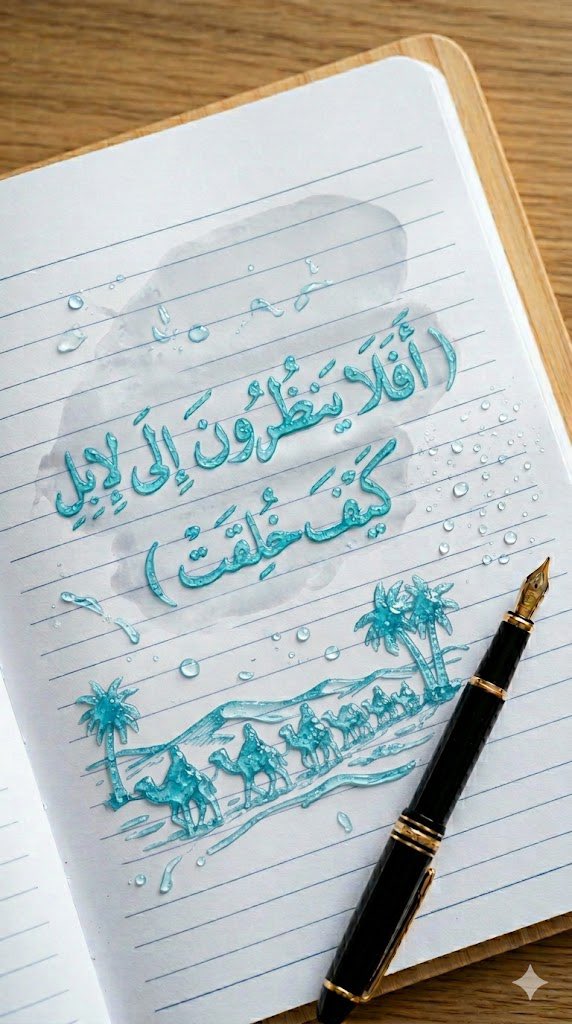 (أَفَلَا يَنظُرُونَ إِلَى لْإِبِلِ
كَيْفَ خُلِقَتْ)